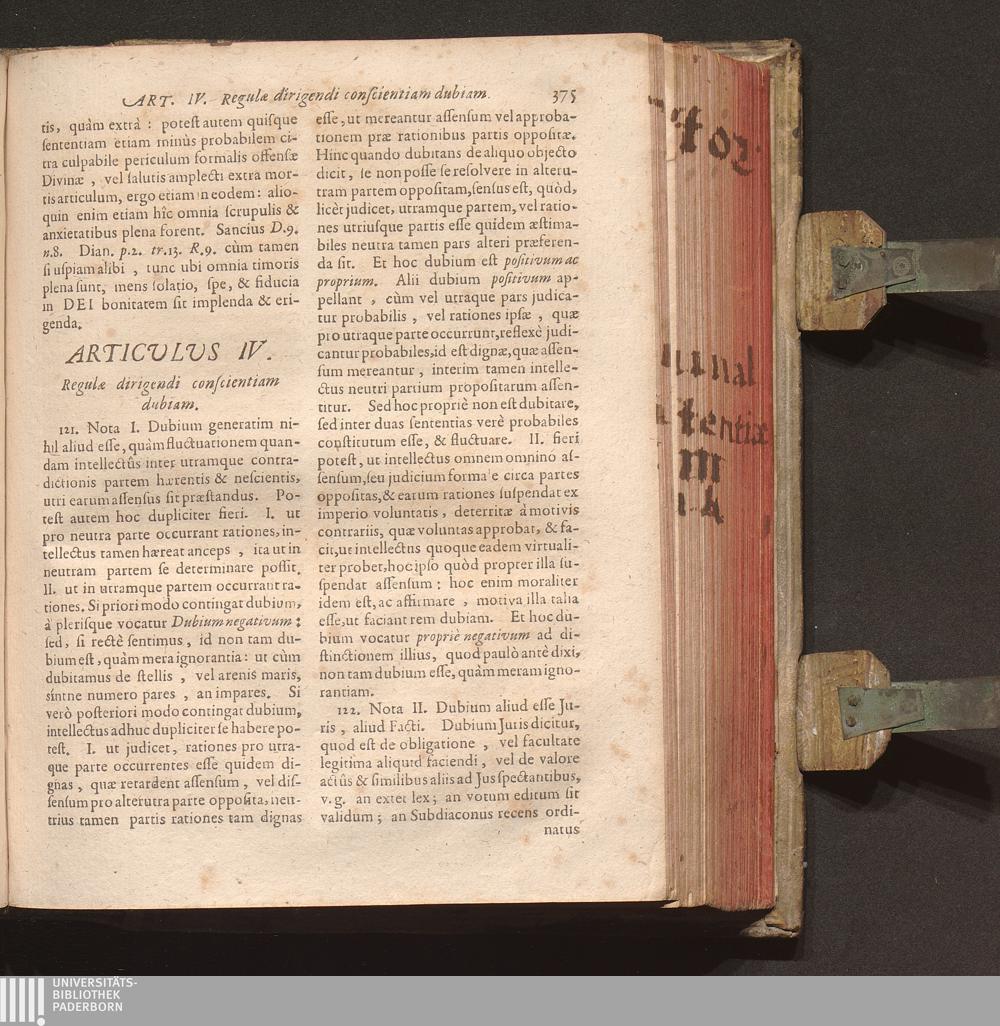 ART. IV. Regulæ dirigendi conſcientiam dubiam. 375
tis, quàm extrà: poteſt autem quiſque
ſententiam etiam minùs probabilem ci-
tra culpabile periculum formalis offenſæ
Divinæ, vel ſalutis amplecti extra mor-
tis articulum, ergo etiam in eodem: alio-
quin enim etiam hîc omnia ſcrupulis &
anxietatibus plena forent. Sancius D.9.
n.8. Dian. p.2. tr.13. R.9. cùm tamen
ſi uſpiam alibi, tunc ubi omnia timoris
plena ſunt, mens ſolatio, ſpe, & fiducia
in DEI bonitatem ſit implenda & eri-
genda.
ARTICULUS IV.
Regulæ dirigendi conſcientiam
dubiam.
121. Nota I. Dubium generatim ni-
hil aliud eſſe, quàm fluctuationem quan-
dam intellectûs inter utramque contra-
dictionis partem hærentis & neſcientis,
utri earum aſſenſus ſit præſtandus. Po-
teſt autem hoc dupliciter fieri. I. ut
pro neutra parte occurrant rationes, in-
tellectus tamen hæreat anceps, ita ut in
neutram partem ſe determinare poſſit.
II. ut in utramque partem occurrant ra-
tiones. Si priori modo contingat dubium,
à pleriſque vocatur Dubium negativum:
ſed, ſi rectè ſentimus, id non tam du-
bium eſt, quàm mera ignorantia: ut cùm
dubitamus de ſtellis, vel arenis maris,
síntne numero pares, an impares. Si
verò poſteriori modo contingat dubium,
intellectus adhuc dupliciter ſe habere po-
teſt. I. ut judicet, rationes pro utra-
que parte occurrentes eſſe quidem di-
gnas, quæ retardent aſſenſum, vel diſ-
ſenſum pro alterutra parte oppoſita, neu-
trius tamen partis rationes tam dignas
eſſe, ut mereantur aſſenſum vel approba-
tionem præ rationibus partis oppoſitæ.
Hinc quando dubitans de aliquo objecto
dicit, ſe non poſſe ſe reſolvere in alteru-
tram partem oppoſitam, ſenſus eſt, quòd,
licèt judicet, utramque partem, vel ratio-
nes utriuſque partis eſſe quidem æſtima-
biles neutra tamen pars alteri præferen-
da ſit. Et hoc dubium eſt poſitivum ac
proprium. Alii dubium poſitivum ap-
pellant, cùm vel utraque pars judica-
tur probabilis, vel rationes ipſæ, quæ
pro utraque parte occurrunt, reflexè judi-
cantur probabiles, id eſt dignæ, quæ aſſen-
ſum mereantur, interim tamen intelle-
ctus neutri partium propoſitarum aſſen-
titur. Sed hoc propriè non eſt dubitare,
ſed inter duas ſententias verè probabiles
conſtitutum eſſe, & fluctuare. II. fieri
poteſt, ut intellectus omnem omnino aſ-
ſenſum, ſeu judicium formale circa partes
oppoſitas, & earum rationes ſuſpendat ex
imperio voluntatis, deterritæ à motivis
contrariis, quæ voluntas approbat, & fa-
cit, ut intellectus quoque eadem virtuali-
ter probet, hoc ipſo quòd propter illa ſu-
ſpendat aſſenſum: hoc enim moraliter
idem eſt, ac affirmare, motiva illa talia
eſſe, ut faciant rem dubiam. Et hoc du-
bium vocatur propriè negativum ad di-
ſtinctionem illius, quod paulò antè dixi,
non tam dubium eſſe, quàm meram igno-
rantiam.
122. Nota II. Dubium aliud eſſe Ju-
ris, aliud Facti. Dubium Juris dicitur,
quod eſt de obligatione, vel facultate
legitima aliquid faciendi, vel de valore
actûs & ſimilibus aliis ad Jus ſpectantibus,
v.g. an extet lex; an votum editum ſit
validum; an Subdiaconus recens ordi-
natus
UNIVERSITÄTS-
BIBLIOTHEK
PADERBORN